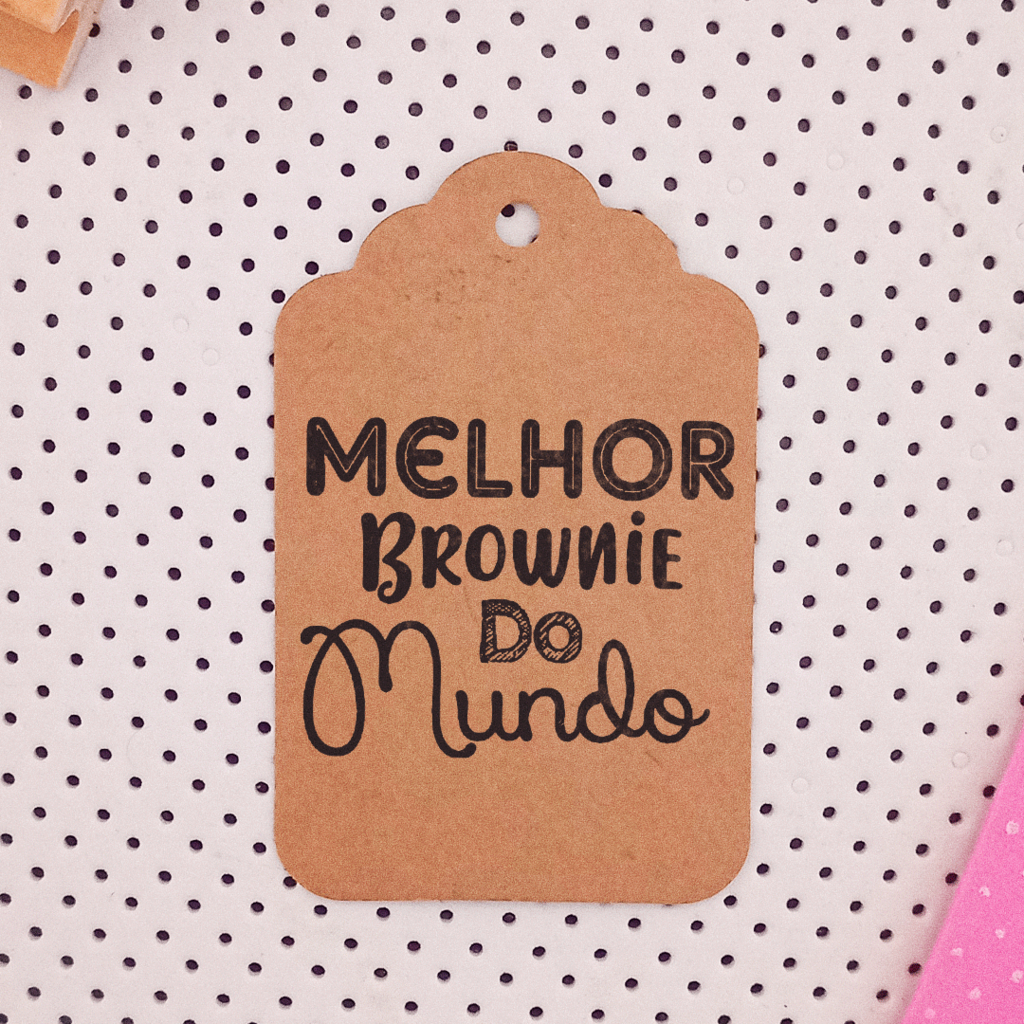 MELHOR
BROWNIE
DO
Mundo